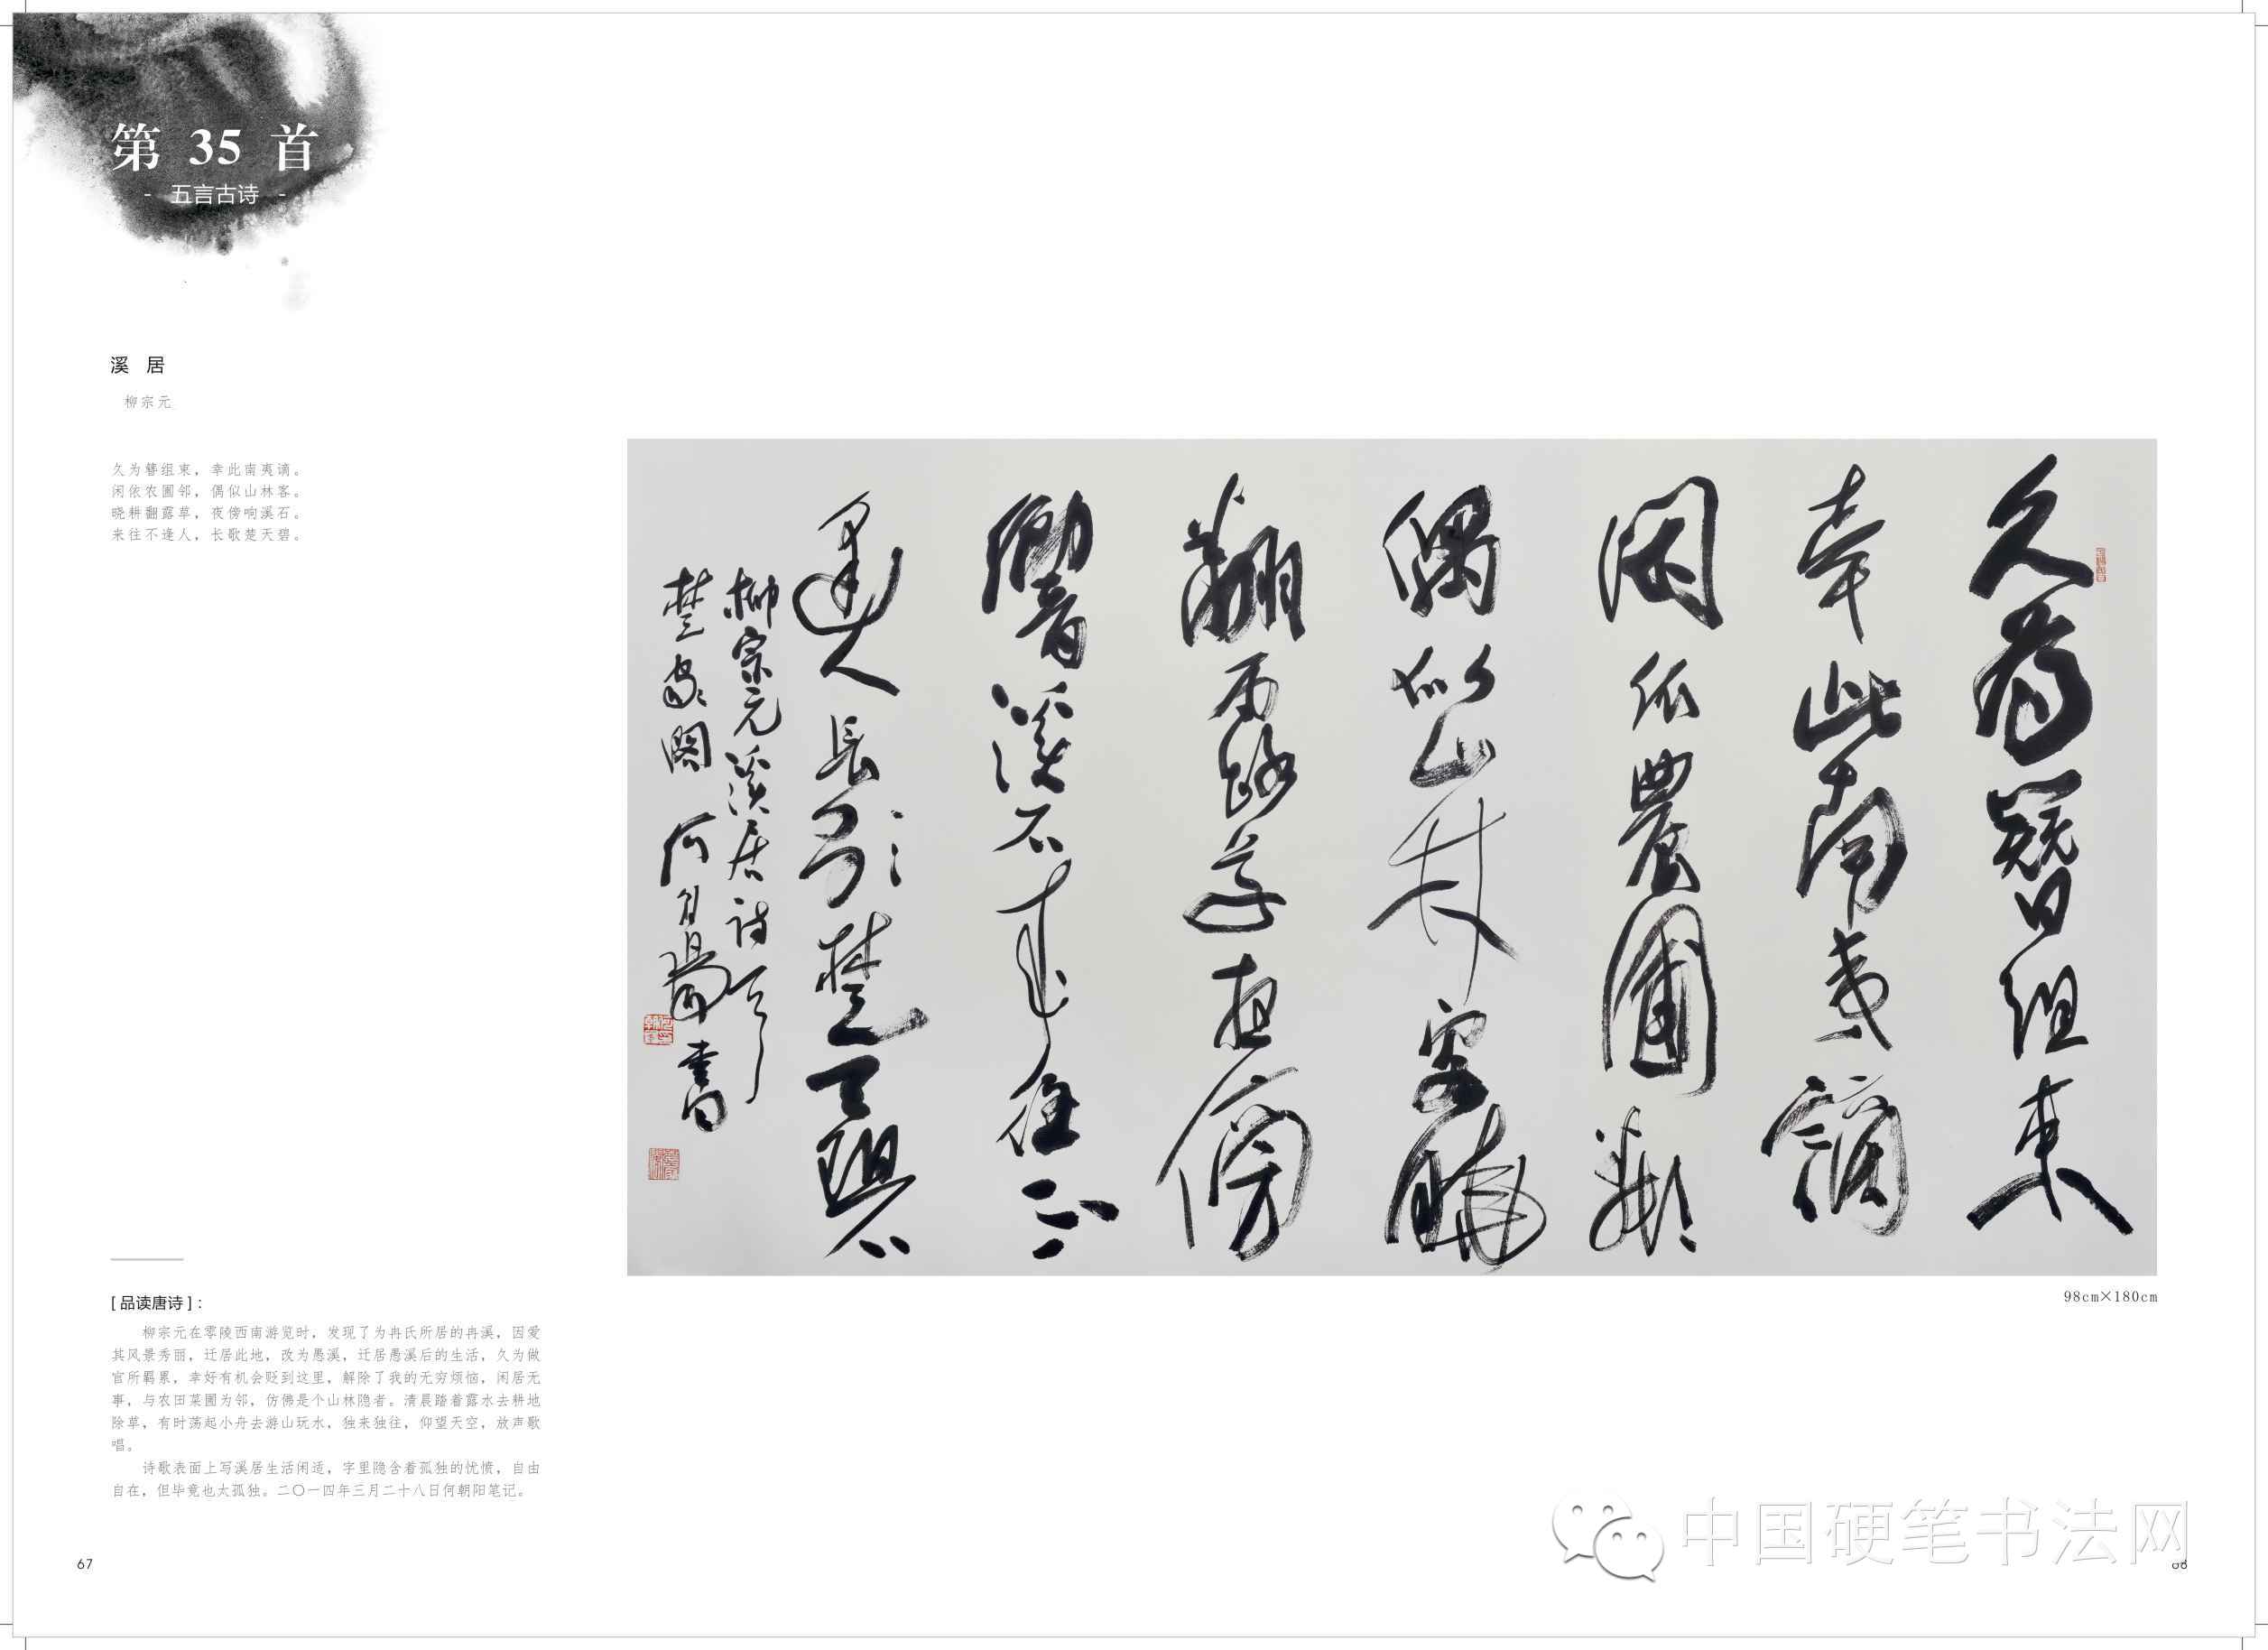 第 35 首
- 五言古诗 -
溪 居
柳宗元
久为簪组束，幸此南夷谪。
闲依农圃邻，偶似山林客。
晓耕翻露草，夜傍响溪石。
来往不逢人，长歌楚天碧。
久為簪組束
幸此南夷謫
閑依農圃鄰
偶似山林客曉
翻露草夜傍
響溪石來往不
逢人長歌楚天碧
柳宗元溪居詩
何朝陽書
98cm×180cm
[ 品读唐诗 ]：
柳宗元在零陵西南游览时，发现了为冉氏所居的冉溪，因爱
其风景秀丽，迁居此地，改为愚溪，迁居愚溪后的生活，久为做
官所羁累，幸好有机会贬到这里，解除了我的无穷烦恼，闲居无
事，与农田菜圃为邻，仿佛是个山林隐者。清晨踏着露水去耕地
除草，有时荡起小舟去游山玩水，独来独往，仰望天空，放声歌
唱。
诗歌表面上写溪居生活闲适，字里隐含着孤独的忧愤，自由
自在，但毕竟也太孤独。二〇一四年三月二十八日何朝阳笔记。
中国硬笔书法网
67
68